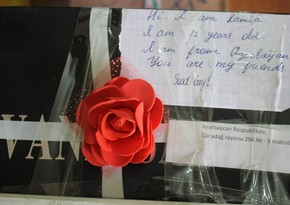 Hi. I am Lamia
I am 12 years old.
I am from Azerbaijan
You are my friends.
Good boy!
Azərbaycan Respublikası
Qaradağ rayonu 298 №-li məktəb
VAN